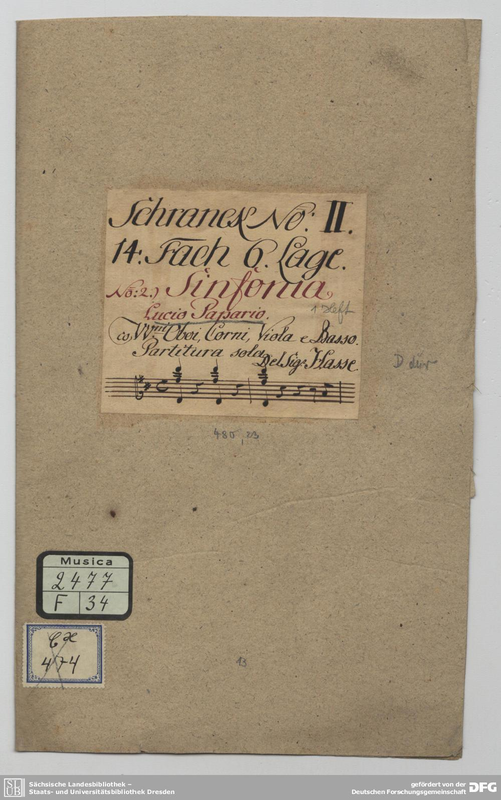 Schranck No: II.
14: Fach 6. Lage.
No: 2.) Sinfonia
Lucio Papirio.
1 Heft
co VV.ni Oboi, Corni, Viola e Basso.
Partitura sola. Del Sig.r Hasse.
D dur
480, 23
Musica
2477
F 34
Cx
474
13
Sächsische Landesbibliothek –
Staats- und Universitätsbibliothek Dresden
gefördert von der
Deutschen Forschungsgemeinschaft DFG
SLUB